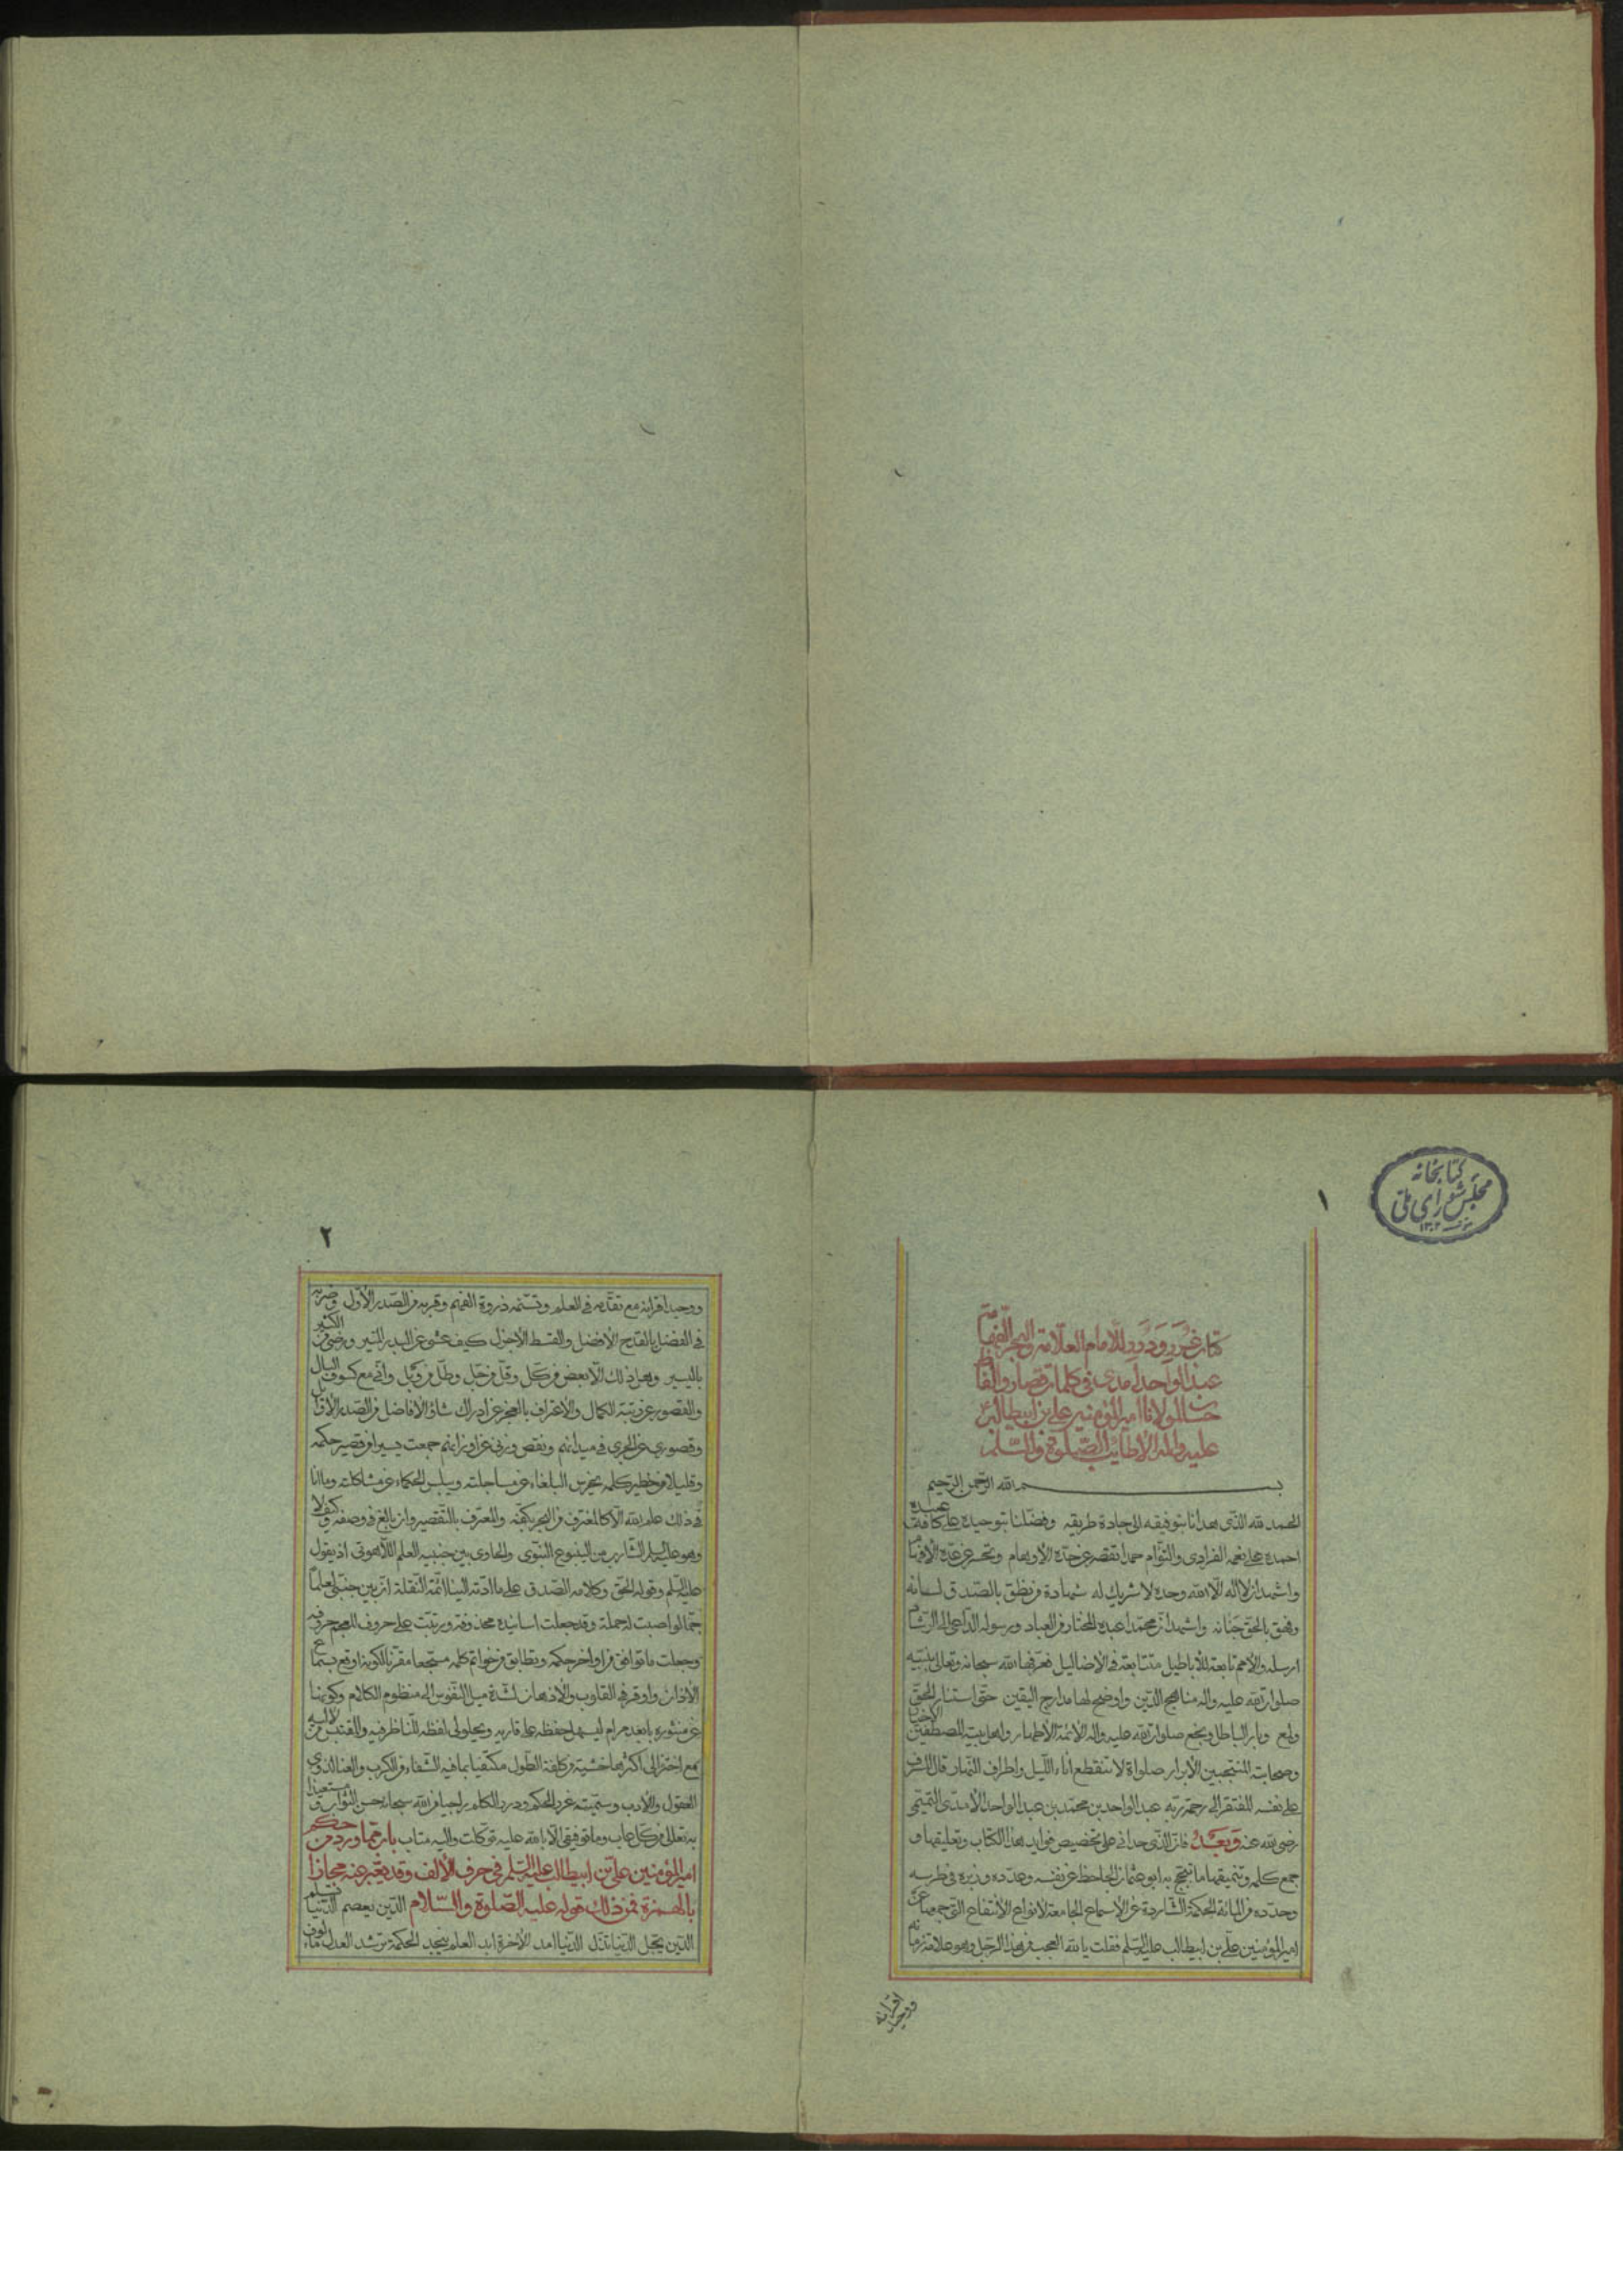 كتابخانه
مجلس شورای ملی
١٣٠٢
١
كتاب غرر ودرر للامام العلامة والبحر الفهامة
عبد الواحد آمدى فى كلمات قصار والفاظ
حسان لمولانا امير المؤمنين على بن ابيطالب
عليه واله الاطايب الصلوة والسلم
بسم الله الرحمن الرحيم
الحمد لله الذى هدانا بتوفيقه الى جادة طريقه وفضلنا بتوحيده على كافة عبيده
احمده على نعمه الفرادى والتوام حمدا تقصر عن حده الاوهام وتحسر عن عده الافهام
واشهد ان لا اله الا الله وحده لا شريك له شهادة من نطق بالصدق لسانه
وفهق بالحق جنانه واشهد ان محمدا عبده المختار من العباد ورسوله الداعى الى الرشاد
ارسله والامم تابعة للاباطيل متتابعة فى الاضاليل فعرفها الله سبحانه وتعالى بنبيه
صلوات الله عليه واله مناهج الدين واوضح لها مدارج اليقين حتى استنار الحق
ولمع وبار الباطل ونجع صلوات الله عليه واله الائمة الاطهار واهل بيته المصطفين الاخيار
وصحابته المنتجبين الابرار صلواة لا تنقطع اناء الليل واطراف النهار قال المسرف
على نفسه المفتقر الى رحمة ربه عبد الواحد بن محمد بن عبد الواحد الامدى التميمى
رضى الله عنه وبعد فان الذى حدانى على تخصيص فوايد هذا الكتاب وتعليقها و
جمع كلمه وتنميقها ما تبجح به ابو عثمان الجاحظ عن نفسه وعدده وزبره فى طرسه
وحدده من المائة الحكمة الشاردة عن الاسماع الجامعة لانواع الانتفاع التى جمعها عن
امير المؤمنين على بن ابيطالب عليه السلم فقلت يا لله العجب من هذا الرجل وهو علامة زمانه
ووحيد اقرانه
٢
ووحيد اقرانه مع تقدمه فى العلم وتسنمه ذروة الفهم وقربه من الصدر الاول وضربه
فى الفضل بالقدح الافضل والقسط الاجزل كيف عشى عن البدر المنير ورضى من الكثير
باليسير وهل ذلك الا بعض من كل وقل من جل وطل من وبل وانى مع كسوف البال
والقصور عن رتبة الكمال والاعتراف بالعجز عن ادراك شاو الافاضل من الصدر الاوائل
وقصورى عن الجرى فى ميدانهم ونقص وزنى عن اوزانهم جمعت يسيرا من قصير حكمه
وقليلا من خطير كلمه يخرس البلغاء عن مساجلته ويبلس الحكماء عن مشاكلته وما انا
فى ذلك علم الله الا كالمغترف من البحر بكفه والمعترف بالتقصير وان بالغ فى وصفه وكيف لا
وهو عليه السلم الشارب من الينبوع النبوى والحاوى بين جنبيه العلم اللاهوتى اذ يقول
عليه السلم وقوله الحق وكلامه الصدق على ما ادته الينا ائمة النقلة ان بين جنبى لعلما
جما لو اصبت له حملة وقد جعلت اسانيده محذوفة ورتبت على حروف المعجم حروفه
وجعلت ما توافق من اواخر حكمه وتطابق من خواتم كلمه مستجعا مقرنا لكونه اوقع بسماع
الاذان واوقر فى القلوب والاذهان لشدة ميل النفوس الى منظوم الكلام وكونها
عن منثوره بابعد مرام ليسهل حفظه على قاريه ويحلو لى لفظه للناظر فيه والمقتبس من لاليه
مع اختزالى اكثرها خشية من كلفة الطول مكتفيا بما فيه الشفاء من الكرب والعنا لذوى
العقول والادب وسميته غرر الحكم ودرر الكلم راجيا من الله سبحانه حسن الثواب ومستعيذا
به تعالى من كل عاب وما توفيقى الا بالله عليه توكلت واليه متاب باب مما ورد من حكم
امير المؤمنين على بن ابيطالب عليه السلم فى حرف الالف وقد يعبر عنه مجازا
بالهمزة فمن ذلك قوله عليه الصلوة والسلام الدين يعصم الدنيا تسلم
الدين يجل الدنيا تذل الدنيا امد الاخرة ابد العلم ينجد الحكمة ترشد العدل مالوف